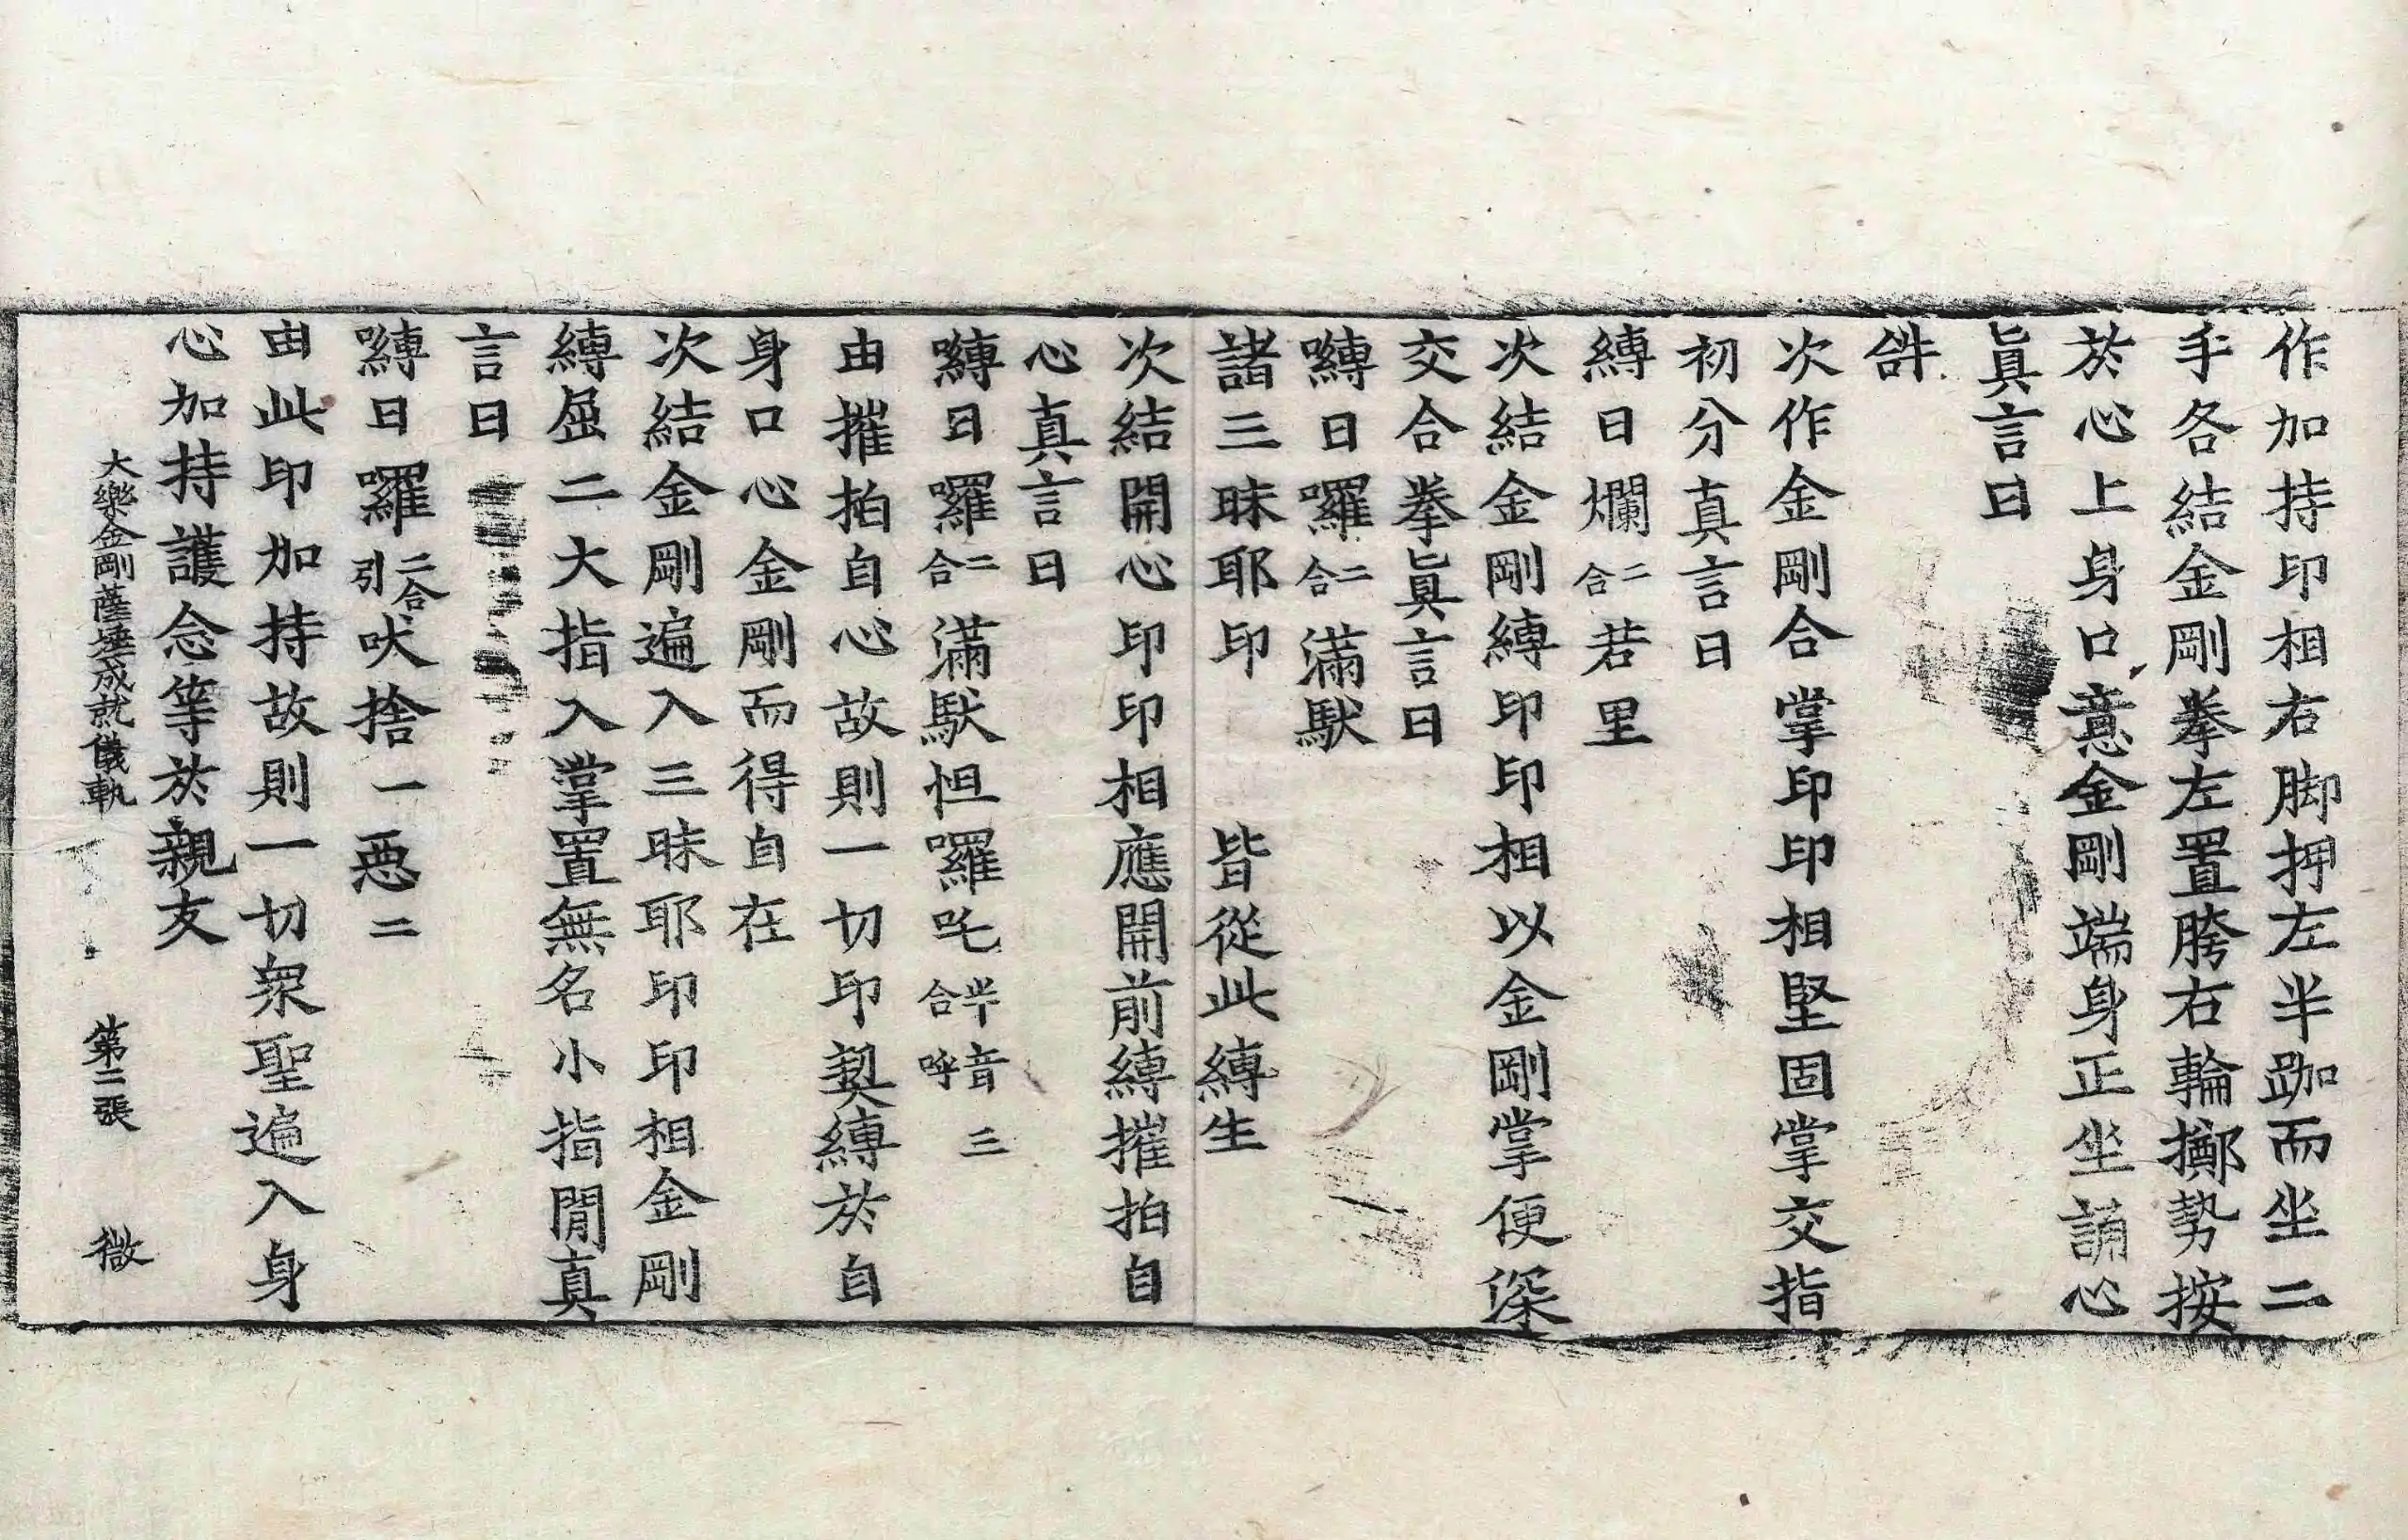 作加持印相右脚押左半跏而坐二
手各結金剛拳左置胯右輪擲勢按
於心上身口意金剛端身正坐誦心
眞言曰
𤙖
次作金剛合掌印印相堅固掌交指
初分真言曰
縛日爛二合若里
次結金剛縛印印相以金剛掌便深
交合拳眞言曰
嚩日囉二合滿馱
諸三昧耶印　皆從此縛生
次結開心印印相應開前縛摧拍自
心真言曰
嚩日囉二合滿馱怛囉吒半音合呼三
由摧拍自心故則一切印契縛於自
身口心金剛而得自在
次結金剛遍入三昧耶印印相金剛
縛屈二大指入掌置無名小指閒真
言曰
嚩日囉二合引吠捨一惡二
由此印加持故則一切衆聖遍入身
心加持護念等於親友
大樂金剛薩埵成就儀軌　第二張　微